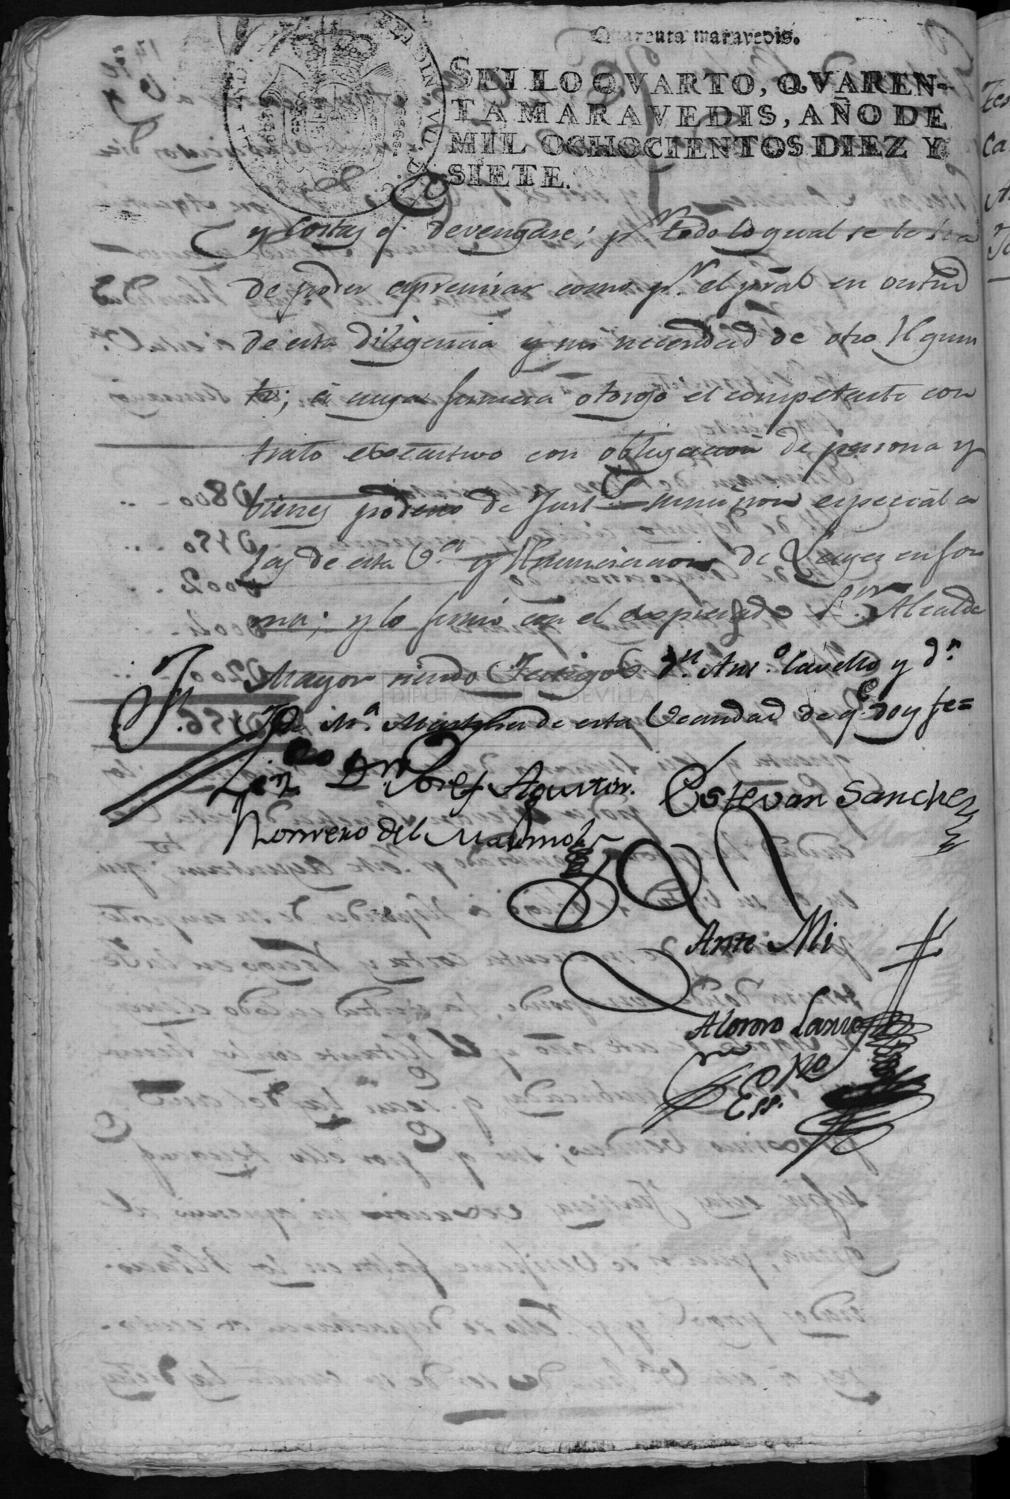 Quarenta maravedis.
SELLO QVARTO, QVAREN-
TA MARAVEDIS, AÑO DE
MIL OCHOCIENTOS DIEZ Y
SIETE.
y Costas q.e devengase; p.r todo lo qual se le ha
de poder apremiar como p.r el pral en virtud
de esta diligencia y sin necesidad de otro
a cuya firmeza otorgó el competente con
trato executivo con obligacion de persona y
vienes poderio de Just.s sumision especial a
las de esta C.d y Renunciacion de Leyes en for
ma; y lo firmó con el expresado S.or Alcalde
Mayor siendo Testigos D.n Ant.o Cavello y D.n
M.a Martinez de esta Vecindad de q.e doy fe=
Liz.do D.n Josef Agustin Estevan Sanchez
Romero del Marmol
Ante Mi
Alonso
Ess.no